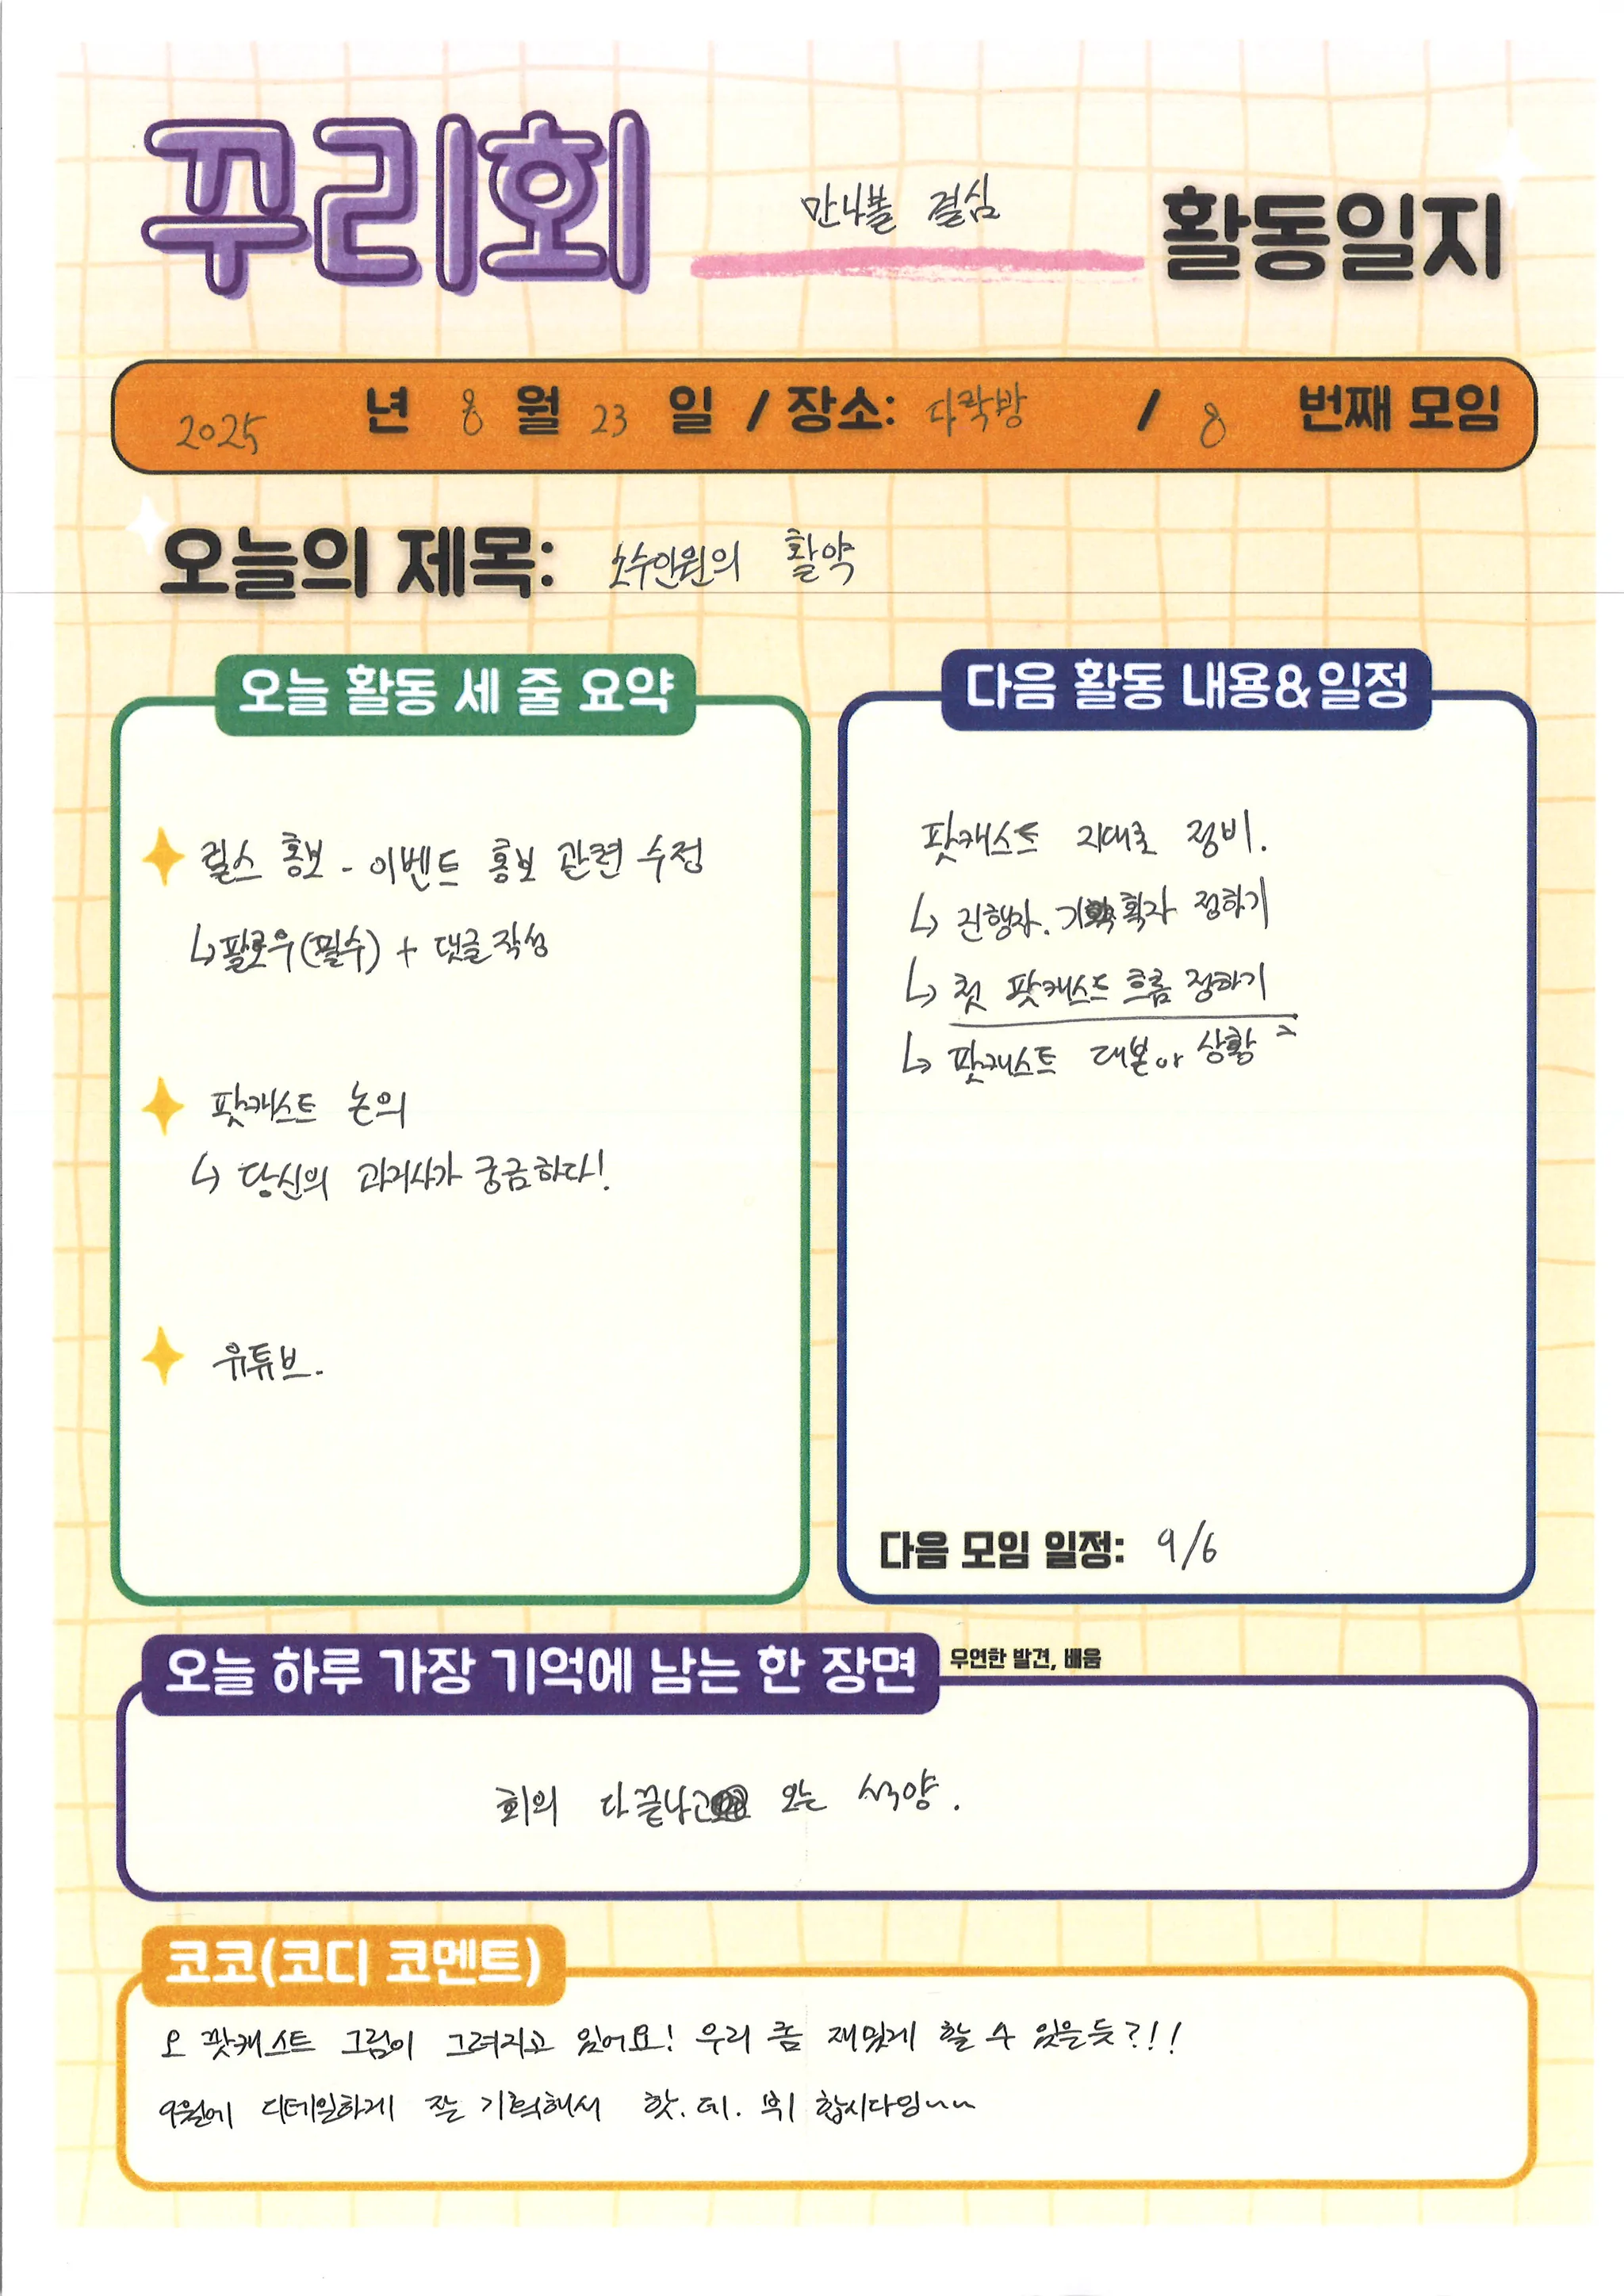 꾸리회 만나볼 결심 활동일지
2025 년 8 월 23 일 / 장소: 다락방 / 8 번째 모임
오늘의 제목: 소수인원의 활약
오늘 활동 세 줄 요약
릴스 홍보 - 이벤트 홍보 관련 수정
↳ 팔로우(필수) + 댓글 작성
팟캐스트 논의
↳ 당신의 과거사가 궁금하다!
유튜브.
다음 활동 내용&일정
팟캐스트 지대로 정비.
↳ 진행자. 기획자 정하기
↳ 첫 팟캐스트 흐름 정하기
↳ 팟캐스트 대본 or 상황
다음 모임 일정: 9/6
오늘 하루 가장 기억에 남는 한 장면 우연한 발견, 배움
회의 다끝나고 오는 석양.
코코(코디 코멘트)
오 팟캐스트 그림이 그려지고 있어요! 우리 좀 재밌게 할 수 있을듯?!!
9월에 디테일하게 잘 기획해서 핫. 데. 뷔 합시다잉~~